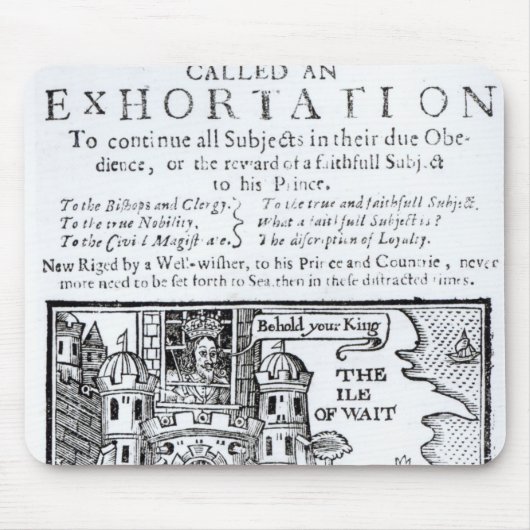 CALLED AN
EXHORTATION
To continue all Subjects in their due Obe-
dience, or the reward of a faithfull Subject
to his Prince.
To the Bishops and Clergy. To the true and faithfull Subject.
To the true Nobility, What a faithfull Subject is?
To the Civill Magistrate. The discription of Loyalty.
New Riged by a Well-wisher, to his Prince and Countrie, never
more need to be set forth to Sea, then in these distracted times.
Behold your King
THE
ILE
OF WAIT